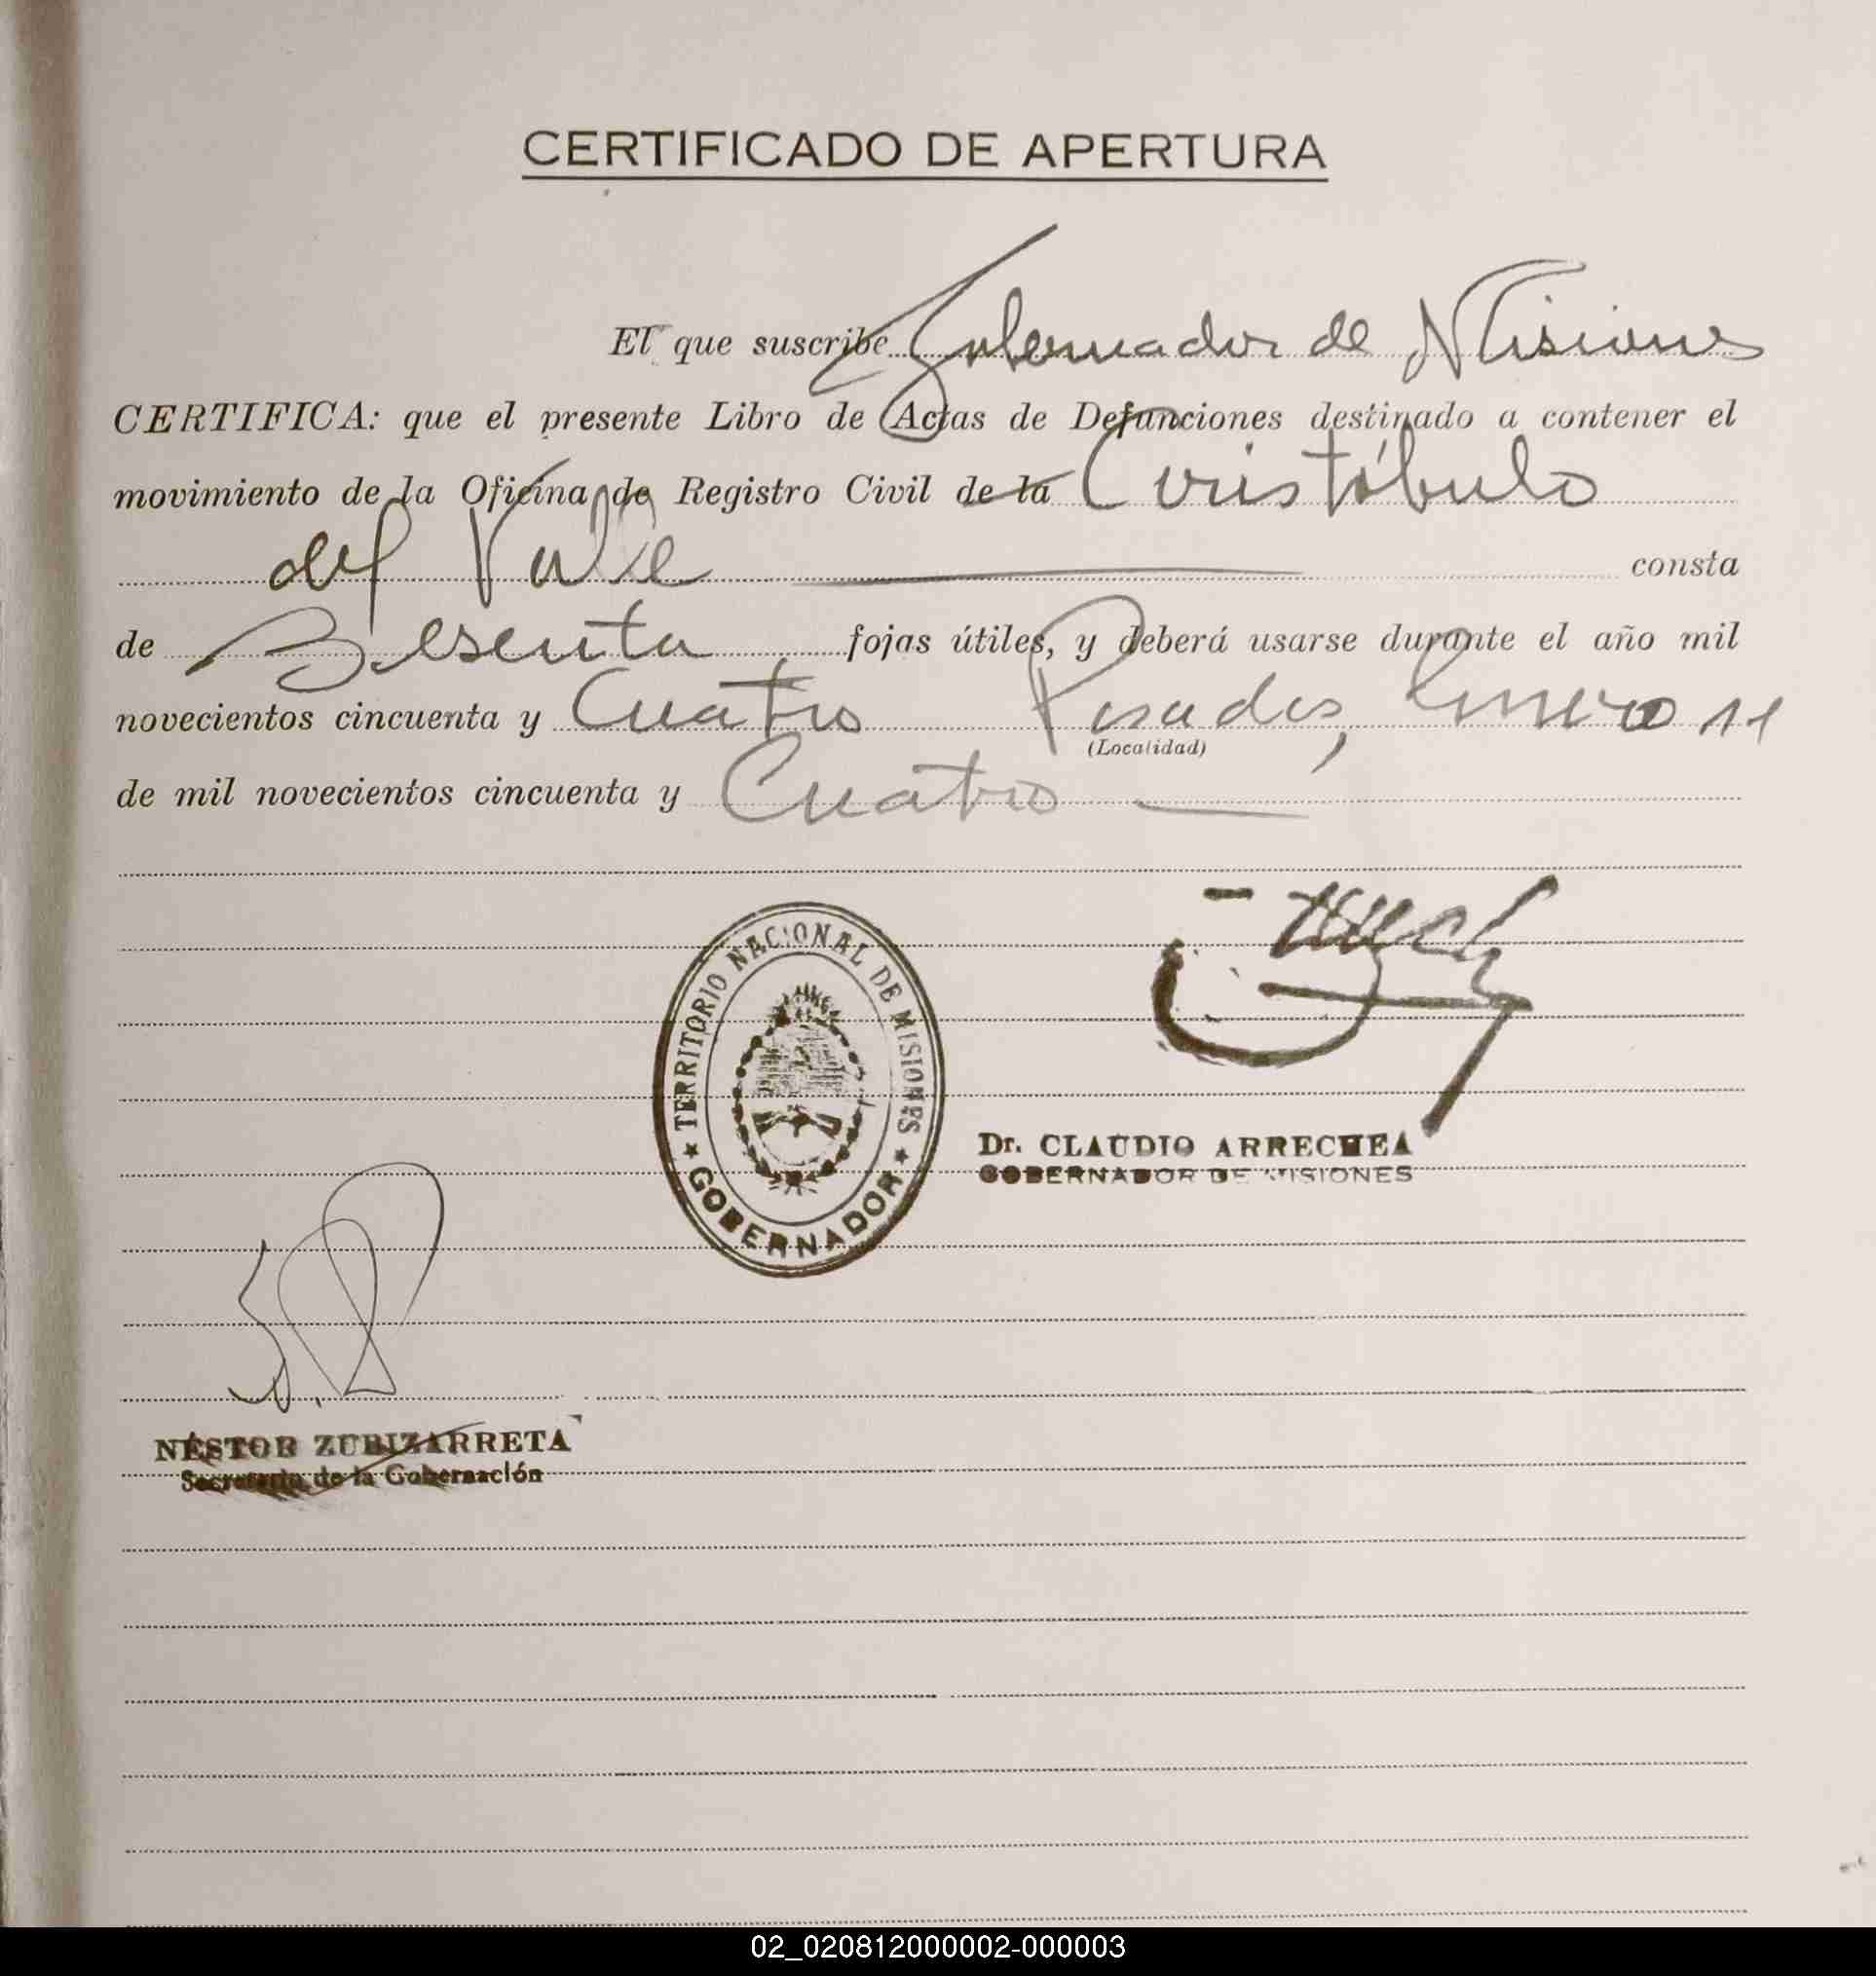 CERTIFICADO DE APERTURA
El que suscribe Gobernador de Misiones
CERTIFICA: que el presente Libro de Actas de Defunciones destinado a contener el
movimiento de la Oficina de Registro Civil de la Aristóbulo
del Valle consta
de Sesenta fojas útiles, y deberá usarse durante el año mil
novecientos cincuenta y Cuatro Posadas, Enero 11
(Localidad)
de mil novecientos cincuenta y Cuatro
TERRITORIO NACIONAL DE MISIONES
GOBERNADOR
Dr. CLAUDIO ARRECHEA
GOBERNADOR DE MISIONES
NÉSTOR ZUBIZARRETA
Secretario de la Gobernación
02_020812000002-000003